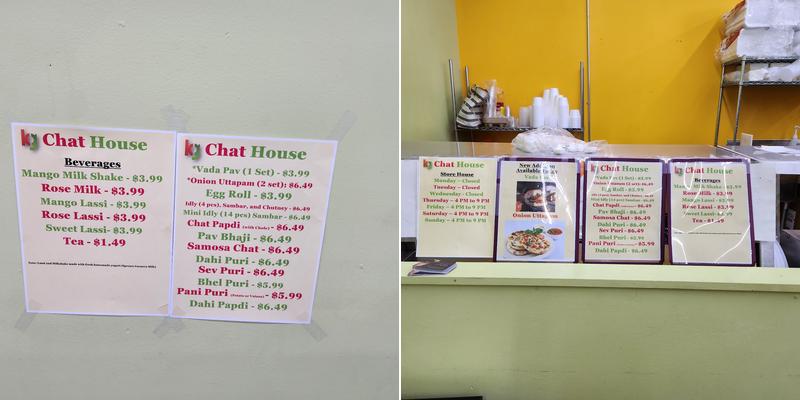 Chat House
Beverages
Mango Milk Shake - $3.99
Rose Milk - $3.99
Mango Lassi - $3.99
Rose Lassi - $3.99
Sweet Lassi- $3.99
Tea - $1.49
Chat House
*Vada Pav (1 Set) - $3.99
*Onion Uttapam (2 set): $6.49
Egg Roll - $3.99
Idly (4 pcs), Sambar, and Chutney - $6.49
Mini Idly (14 pcs) Sambar - $6.49
Chat Papdi (with Chole) - $6.49
Pav Bhaji - $6.49
Samosa Chat - $6.49
Dahi Puri - $6.49
Sev Puri - $6.49
Bhel Puri - $5.99
Pani Puri (Potato or Vatana) - $5.99
Dahi Papdi - $6.49
Chat House
Store House
Monday – Closed
Tuesday – Closed
Wednesday – Closed
Thursday – 4 PM to 9 PM
Friday – 4 PM to 9 PM
Saturday – 4 PM to 9 PM
Sunday – 4 PM to 9 PM
New Addition
Available
Vada
Onion Uttapam
Chat House
Vada Pav (1 Set) - $3.99
*Onion Uttapam (2 set): $6.49
Egg Roll - $3.99
Mini Idly (14 pcs) Sambar - $6.49
Chat Papdi - $6.49
Pav Bhaji - $6.49
Samosa Chat - $6.49
Dahi Puri - $6.49
Sev Puri - $6.49
Bhel Puri - $5.99
Pani Puri - $5.99
Dahi Papdi - $6.49
Chat House
Beverages
Mango Milk Shake - $3.99
Rose Milk - $3.99
Mango Lassi - $3.99
Rose Lassi - $3.99
Sweet Lassi- $3.99
Tea - $1.49